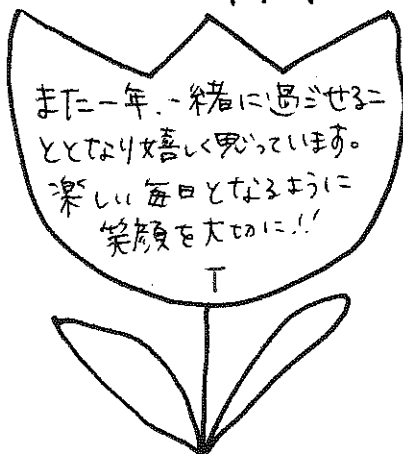 また一年、一緒に過ごせるこ
ととなり嬉しく思っています。
楽しい毎日となるように
笑顔を大切に!!
T